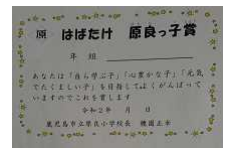 原 はばたけ 原良っ子賞
年 組
あなたは「自ら学ぶ子」「心豊かな子」「元気
でたくましい子」を目指してよくがんばって
いますのでこれを賞します
令和2年 月 日
鹿児島市立原良小学校長